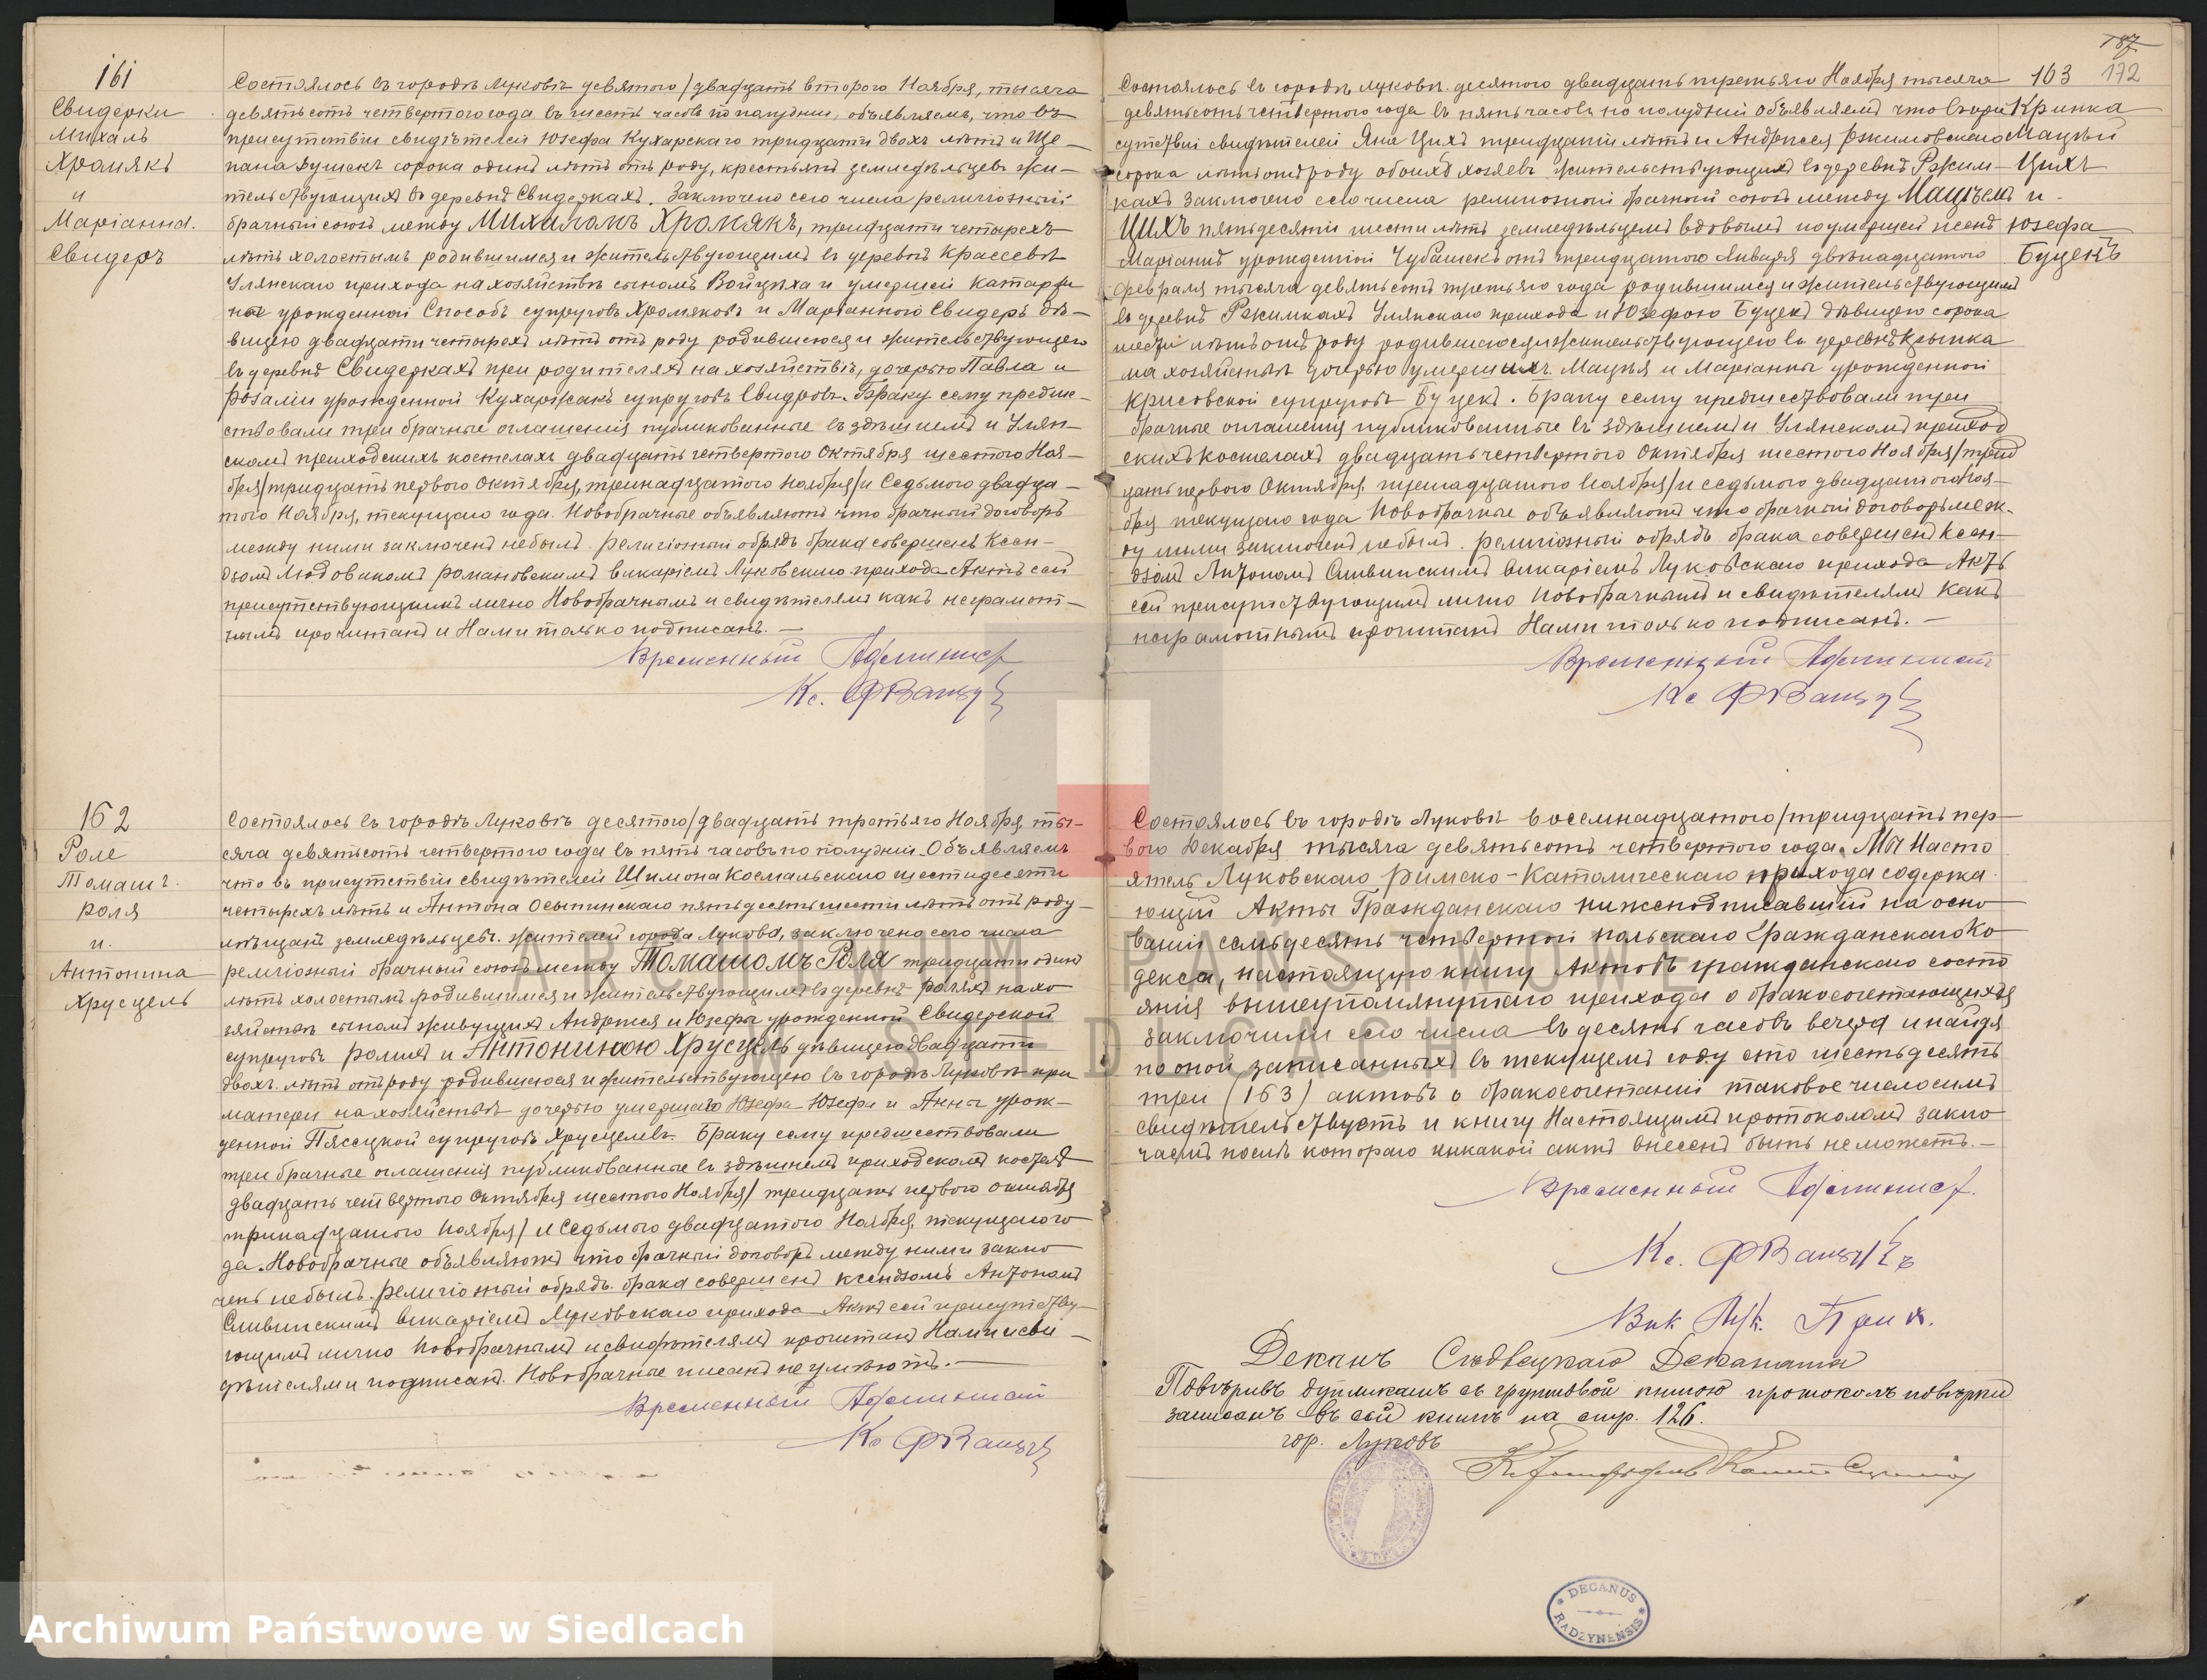 161
Свидерки
Михаль
Хромякъ
и
Маріанна
Свидеръ
Состоялось въ городѣ Луковѣ девятого/двадцать второго Ноября, тысяча
девятьсотъ четвертого года въ шесть часовъ по полудни, объявляемъ, что въ
присутствіи свидѣтелей Юзефа Кухарскаго тридцати двохъ лѣтъ и Ще-
пана Душекъ сорока одинъ лѣтъ отъ роду, крестьянъ земледѣльцевъ жи-
тельствующихъ въ деревнѣ Свидеркахъ. Заключено сего числа религіозный
брачный союзъ между Михаломъ Хромякъ, тридцати четырехъ
лѣтъ холостымъ родившимся и жительствующимъ въ деревнѣ Крассевѣ
Улянскаго прихода на хозяйствѣ сыномъ Войцѣха и умершей Катаржи
ны урожденной Способъ супруговъ Хромяковъ и Маріанною Свидеръ дѣ-
вицею двадцати четырехъ лѣтъ отъ роду родившеюся и жительствующею
въ деревнѣ Свидеркахъ при родителяхъ на хозяйствѣ, дочерью Павла и
Розаліи урожденной Кухаржакъ супруговъ Свидровъ. Браку сему предше-
ствовали три брачные оглашенія публикованные въ здѣшнемъ и Улян-
скомъ приходскихъ костелахъ двадцать четвертого Октября шестого Ноя-
бря/тридцать первого Октября, тринадцатого Ноября/и Седьмого двадца-
того Ноября, текущаго года. Новобрачные объявляютъ что брачный договоръ
между ними заключенъ небылъ. Религіозный обрядъ брака совершенъ Ксен-
дзомъ Людовикомъ Романовскимъ викаріемъ Луковскаго прихода Актъ сей
присутствующимъ лично Новобрачнымъ и свидѣтелямъ какъ неграмот-
нымъ прочитанъ и Нами только подписанъ. —
Временный Админист
Кс. Ф
162
Роле
Томашъ
Роля
и.
Антонина
Хрусцель
Состоялось въ городѣ Луковѣ десятого/двадцать третьяго Ноября, ты-
сяча девятьсотъ четвертого года въ пять часовъ по полудни. Объявляемъ
что въ присутствіи свидѣтелей Шимона Космальскаго шестидесяти
четырехъ лѣтъ и Антона Осыпинскаго пятьдесять шести лѣтъ отъ роду
мѣщанъ земледѣльцевъ. жителей города Лукова, заключено сего числа
религіозный брачный союзъ между Томашомъ Роля тридцати одинъ
лѣтъ холостымъ родившимся и жительствующимъ въ деревнѣ Роляхъ на хо
зяйствѣ сыномъ живущихъ Андржея и Юзефы урожденной Свидерской
супруговъ Ролихъ и Антониною Хрусцель дѣвицею двадцати
двохъ лѣтъ отъ роду родившеюся и жительствующею въ городѣ Луковѣ при
матери на хозяйствѣ дочерью умершаго Юзефа Юзефы и Анны урож-
денной Пясецкой супруговъ Хрусцелевъ. Браку сему предшествовали
три брачные оглашенія публикованные въ здѣшнемъ приходскомъ костелѣ
двадцать четвертого Октября шестого Ноября/ тридцать первого Октября
тринадцатого Ноября/ и Седьмого двадцатого Ноября, текущаго го
да. Новобрачные объявляютъ что брачный договоръ между ними заклю
ченъ небылъ. Религіозный обрядъ брака совершенъ ксендзомъ Антономъ
Сливинскимъ викаріемъ Луковскаго прихода Актъ сей присутству-
ющимъ лично Новобрачнымъ и свидѣтелямъ прочитанъ Нами и сви-
дѣтелями подписанъ. Новобрачные писать неумѣютъ. —
Временный Админист
Кс Ф
187
172
163
Кринка
Мацѣй
Цихъ
и
Юзефа
Буцекъ
Состоялось въ городѣ Луковѣ десятого двадцать третьяго Ноября тысяча
девятьсотъ четвертого года въ пять часовъ по полудни Объявляемъ что въ при
сутствіи свидѣтелей Яна Цихъ тридцати лѣтъ и Андржея Ржимовскаго
сорока лѣтъ отъ роду обоихъ хозяевъ жительствующихъ въ деревнѣ Ржим-
кахъ Заключено сего числа религіозный брачный союзъ между Мацѣемъ
ЦИХЪ пятьдесяти шести лѣтъ земледѣльцемъ вдовымъ по умершей женѣ
Маріаннѣ урожденной Чубашекъ отъ тридцатого Января двѣнадцатого
февраля тысяча девятьсотъ третьяго года родившимся и жительствующимъ
въ деревнѣ Ржимкахъ Улянскаго прихода и Юзефою Буцекъ дѣвицею сорока
шести лѣтъ отъ роду родившеюся и жительствующею въ деревнѣ Крынка
на хозяйствѣ дочерью умершихъ Мацѣя и Маріанны урожденной
Крисовской супруговъ Буцекъ. Браку сему предшествовали три
брачные оглашенія публикованные въ здѣшнемъ и Улянскомъ приход
скихъ костелахъ двадцать четвертого Октября шестого Ноября/трид
цать первого Октября, тринадцатого Ноября/и седьмого двадцатого Ноя-
бря текущаго года Новобрачные объявляютъ что брачный договоръ меж-
ду ними заключенъ небылъ. Религіозный обрядъ брака совершенъ Ксен-
дзомъ Антономъ Сливинскимъ викаріемъ Луковскаго прихода Актъ
сей присутствующимъ лично Новобрачнымъ и свидѣтелямъ какъ
неграмотнымъ прочитанъ Нами только подписанъ. —
Временный Админист
Кс Ф
Состоялось въ городѣ Луковѣ восемнадцатого/тридцать пер-
вого Декабря тысяча девятьсотъ четвертого года. Мы Насто
ятель Луковскаго Римско-Католическаго прихода содержа
ющій Акты Гражданскаго нижеподписавшій на осно
ваніи семьдесятъ четвертой польскаго Гражданскаго Ко
декса, настоящую книгу Актовъ гражданскаго состо
янія вышеупомянутаго прихода о бракосочетающихся
заключили сего числа въ десять часовъ вечера и найдя
по оной записанныхъ въ текущемъ году сто шестьдесятъ
три (163) актовъ о бракосочетаніи таковое число симъ
свидѣтельствуетъ и книгу Настоящимъ протоколомъ заклю
чаемъ послѣ котораго никакой актъ внесенъ быть неможетъ. —
Временный Админист.
Кс. Ф
Вик Лук. Прих.
Деканъ Сѣдлецкаго Деканата
Повѣривъ дупликатъ съ грунтовой книгою протоколъ повѣрки
записанъ въ сей книгѣ на стр. 126.
гор. Луковъ
DECANUS
RADZYNENSIS
ARCHIWUM PAŃSTWOWE
W SIEDLCACH
Archiwum Państwowe w Siedlcach